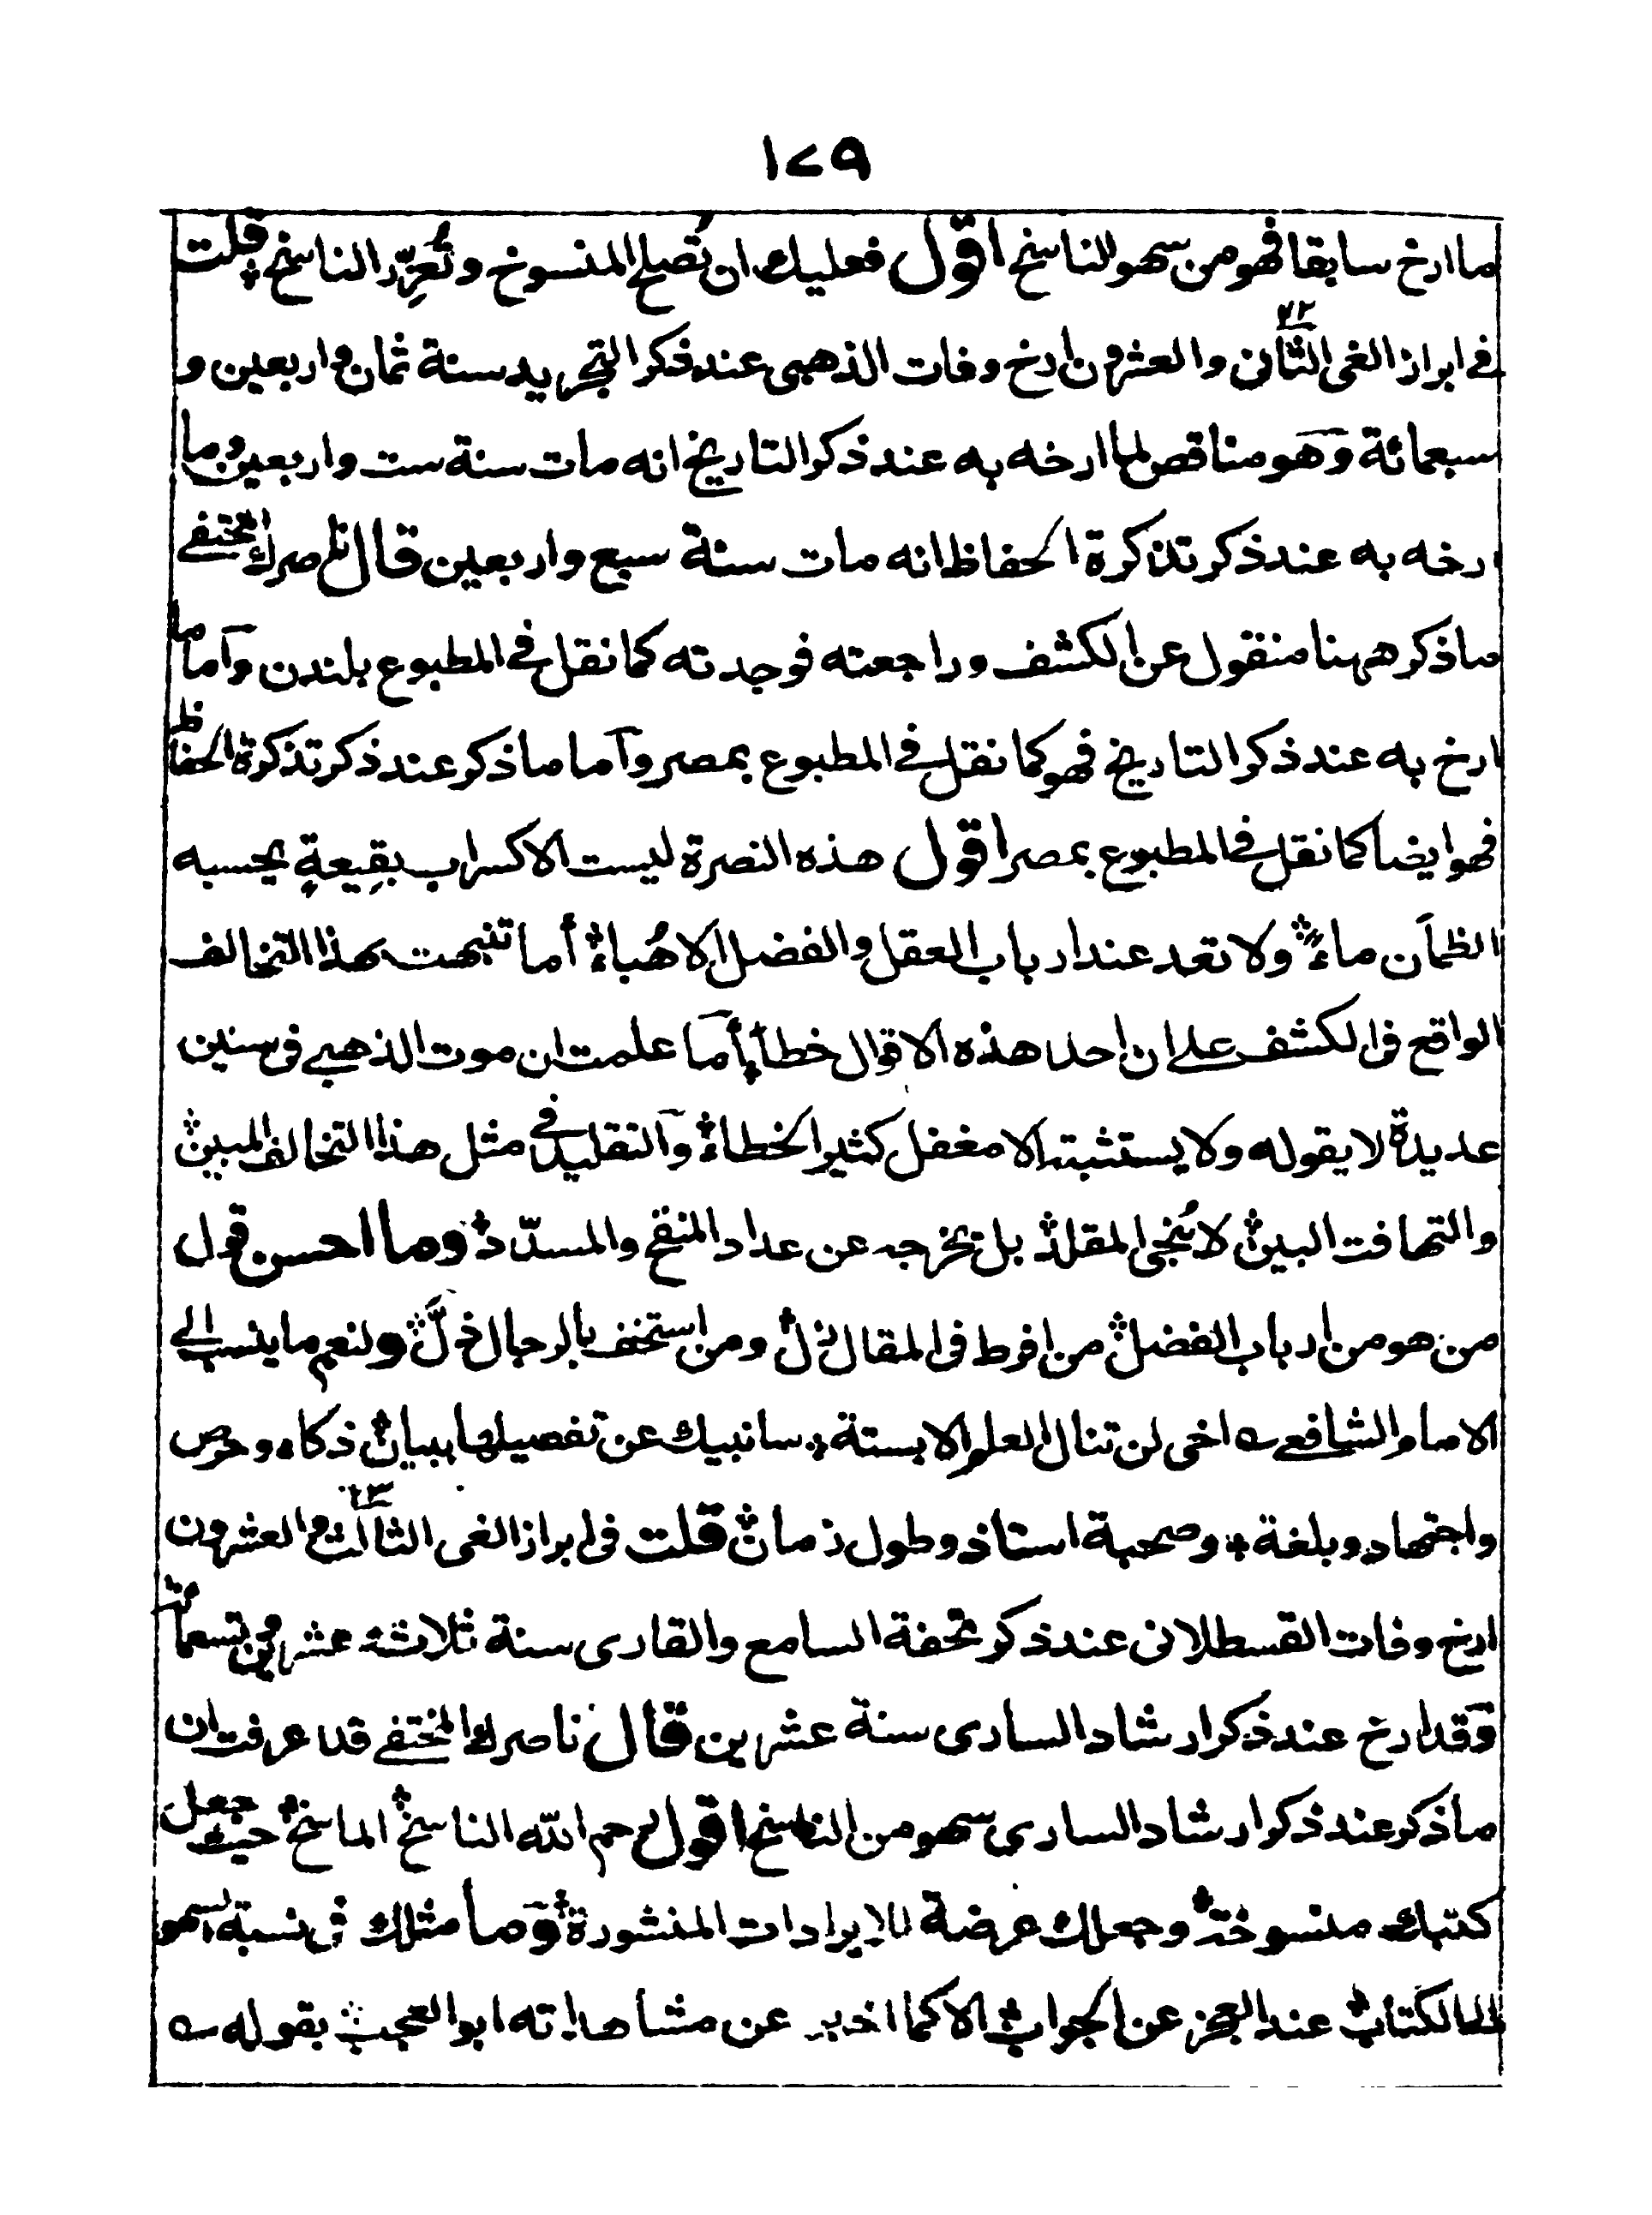 ١٧٩
ما ارخ سابقا فهو من سهو الناسخ اقول فعليك ان تُصلح المنسوخ وتُعزِّر الناسخ قلت
فے ابراز الغی الثانی والعشرون ارخ وفات الذهبی عند ذكر التجريد سنة ثمان واربعين و
سبعمائة وهو مناقض لما ارخه به عند ذكر التاريخ انه مات سنة ست واربعين وما
ارخه به عند ذكر تذكرة الحفاظ انه مات سنة سبع واربعين قال ناصرك المختفے
ما ذكر ههنا منقول عن الكشف وراجعته فوجدته كما نقل فے المطبوع بلندن وآما ما
ارخ به عند ذكر التاريخ فهو كما نقل فے المطبوع بمصر وآما ما ذكر عند ذكر تذكرة الحفاظ
فهو ايضا كما نقل فے المطبوع بمصر اقول هذه النصرة ليست الا كسراب بقِيعةٍ يحسبه
الظمآن ماءً ولا تعد عند ارباب العقل والفضل الا هُباء أما تنبهت بهذا التخالف
الواقع فی الكشف علے ان احد هذه الاقوال خطأ أما علمت ان موت الذهبے فی سنين
عديدة لا يقوله ولا يستثبته الا مغفل كثير الخطاء وآلتقليد فے مثل هذا التخالف المبين
والتهافت البين لا يُنجی المقلد بل يخرجه عن عداد المنقح والمسدّد وما احسن قول
من هو من ارباب الفضل من افرط فی المقال زلّ ومن استخف بالرجال ذلّ ولنعم ما ينسب الے
الامام الشافعے ؎ اخی لن تنال العلم الا بستة سانبيك عن تفصيلها ببيان ذكاء وحرص
واجتهاد وبلغة وصحبة استاذ وطول زمان قلت فی ابراز الغی الثالث والعشرون ٢٣
ارخ وفات القسطلانی عند ذكر تحفة السامع والقاری سنة ثلاثة عشر من تسعمائة
وقد ارخ عند ذكر ارشاد الساری سنة عشرين قال ناصرك المختفے قد عرفت ان
ما ذكر عند ذكر ارشاد الساری سهو من الناسخ اقول رحم الله الناسخ الماسخ حيث جعل
كتبك منسوخة وجعلك عرضة للايرادات المنشورة وما مثلك فی نسبة السهو
الے الكتاب عند العجز عن الجواب الا كما اخبر عن مشاهداته ابو العجب بقوله ؎